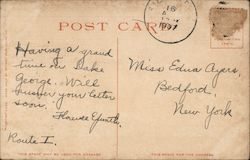 POST CARD
Having a grand
time at Lake
George. Will
answer your letter
soon.
Florence
Route 1.
Miss Edna Ayers
Bedford,
New York
THIS SPACE MAY BE USED FOR MESSAGE
THIS SPACE FOR ADDRESS